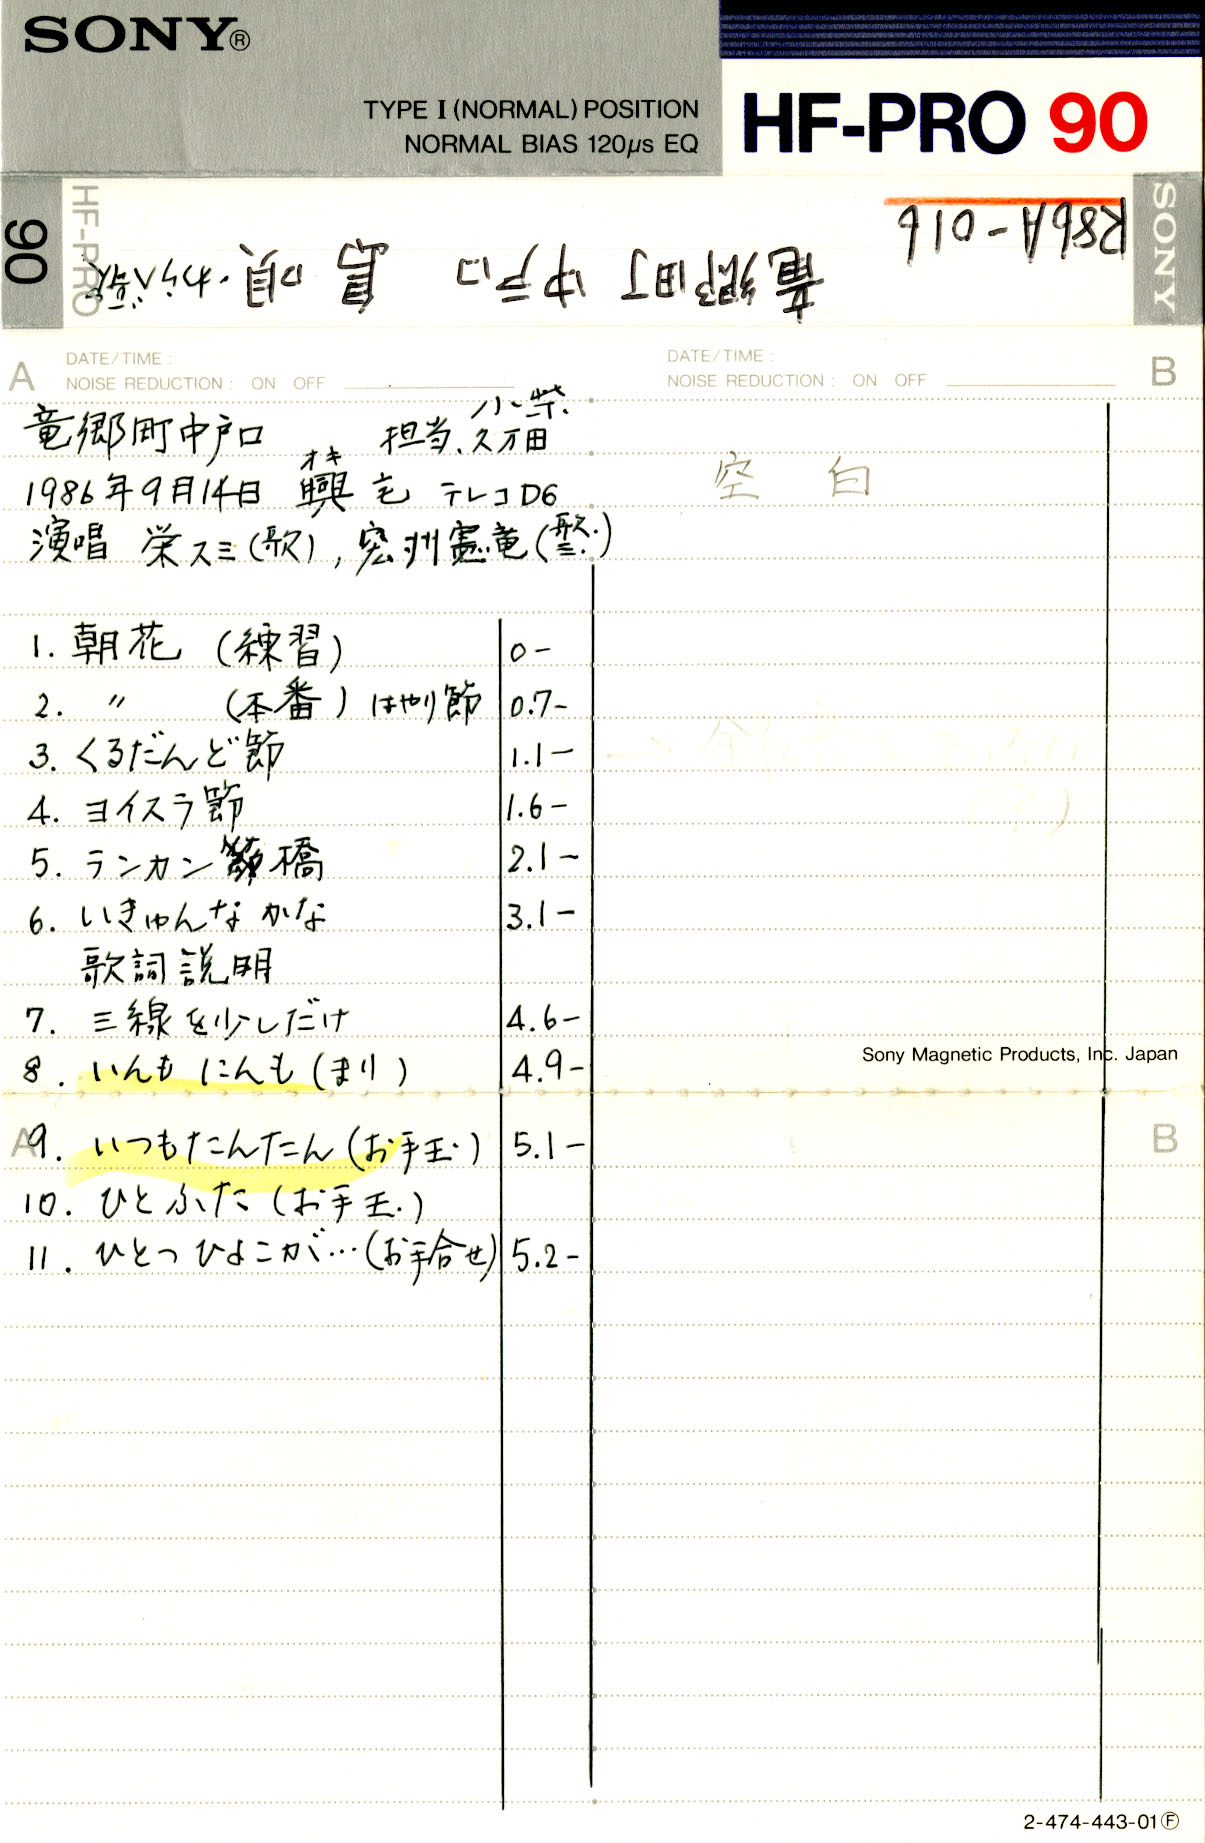 SONY®
TYPE I (NORMAL) POSITION
NORMAL BIAS 120μs EQ
HF-PRO 90
90
HF-PRO
SONY
R86A-016
竜郷町 中戸口 島唄・わらべ歌
A
DATE/TIME :
NOISE REDUCTION : ON OFF
DATE/TIME :
NOISE REDUCTION : ON OFF
B
小柴.
竜郷町中戸口 担当.久万田
オキ
1986年9月14日 興宅 テレコD6
演唱 栄スミ(歌),
空白
1. 朝花 (練習) 0-
2. 〃 (本番) はやり節 0.7-
3. くるだんど節 1.1-
4. ヨイスラ節 1.6-
5. ランカン橋 2.1-
6. いきゅんなかな 3.1-
歌詞説明
7. 三線を少しだけ 4.6-
8. いんもにんも(まり) 4.9-
Sony Magnetic Products, Inc. Japan
A
9. いつもたんたん(お手玉) 5.1-
B
10. ひとふた(お手玉)
11. ひとつひよこが…(お手合せ) 5.2-
2-474-443-01Ⓕ